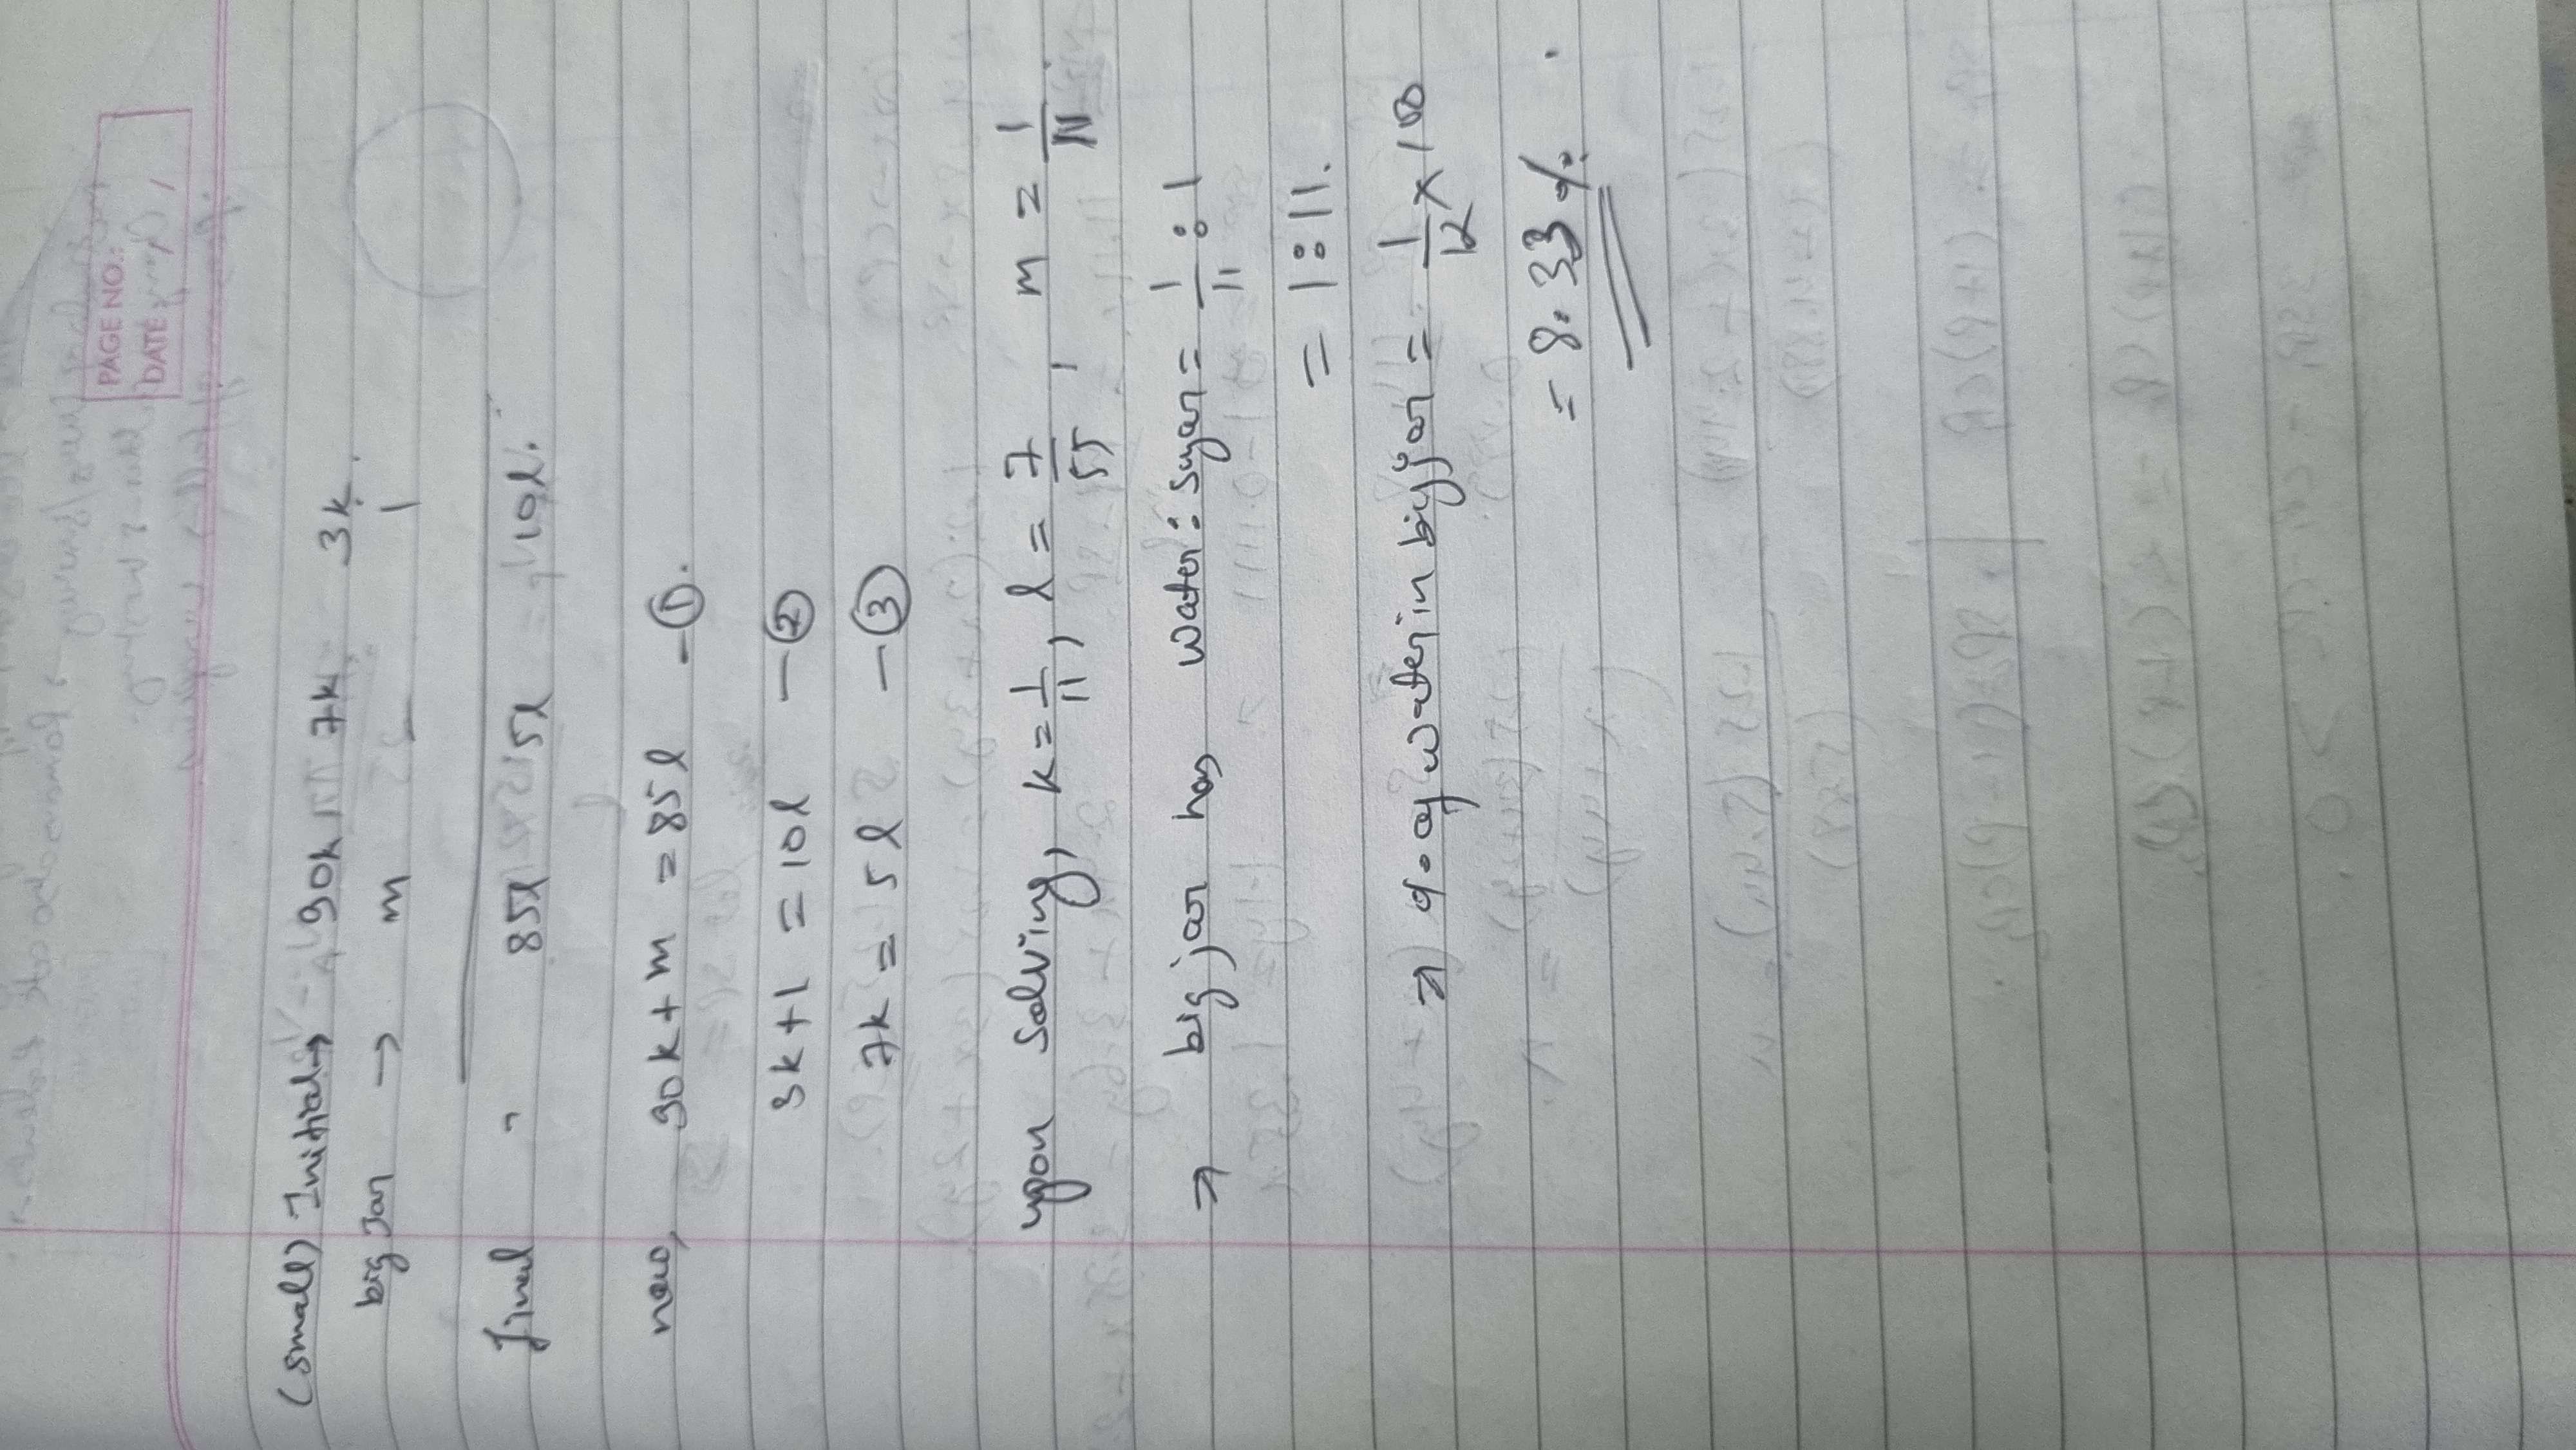 PAGE NO.:
DATE:
(small) Initial → 90k 7k 3k.
big Jar → m — 1
final " 85l 5l 10l.
now, 90k + m = 85l -①.
3k + 1 = 10l -②
7k = 5l -③
upon solving, k = 1/11, l = 7/55, m = 1/11.
→ big jar has water : sugar = 1/11 : 1
= 1 : 11.
→ % of water in big jar = 1/12 × 100
= 8.33 %.